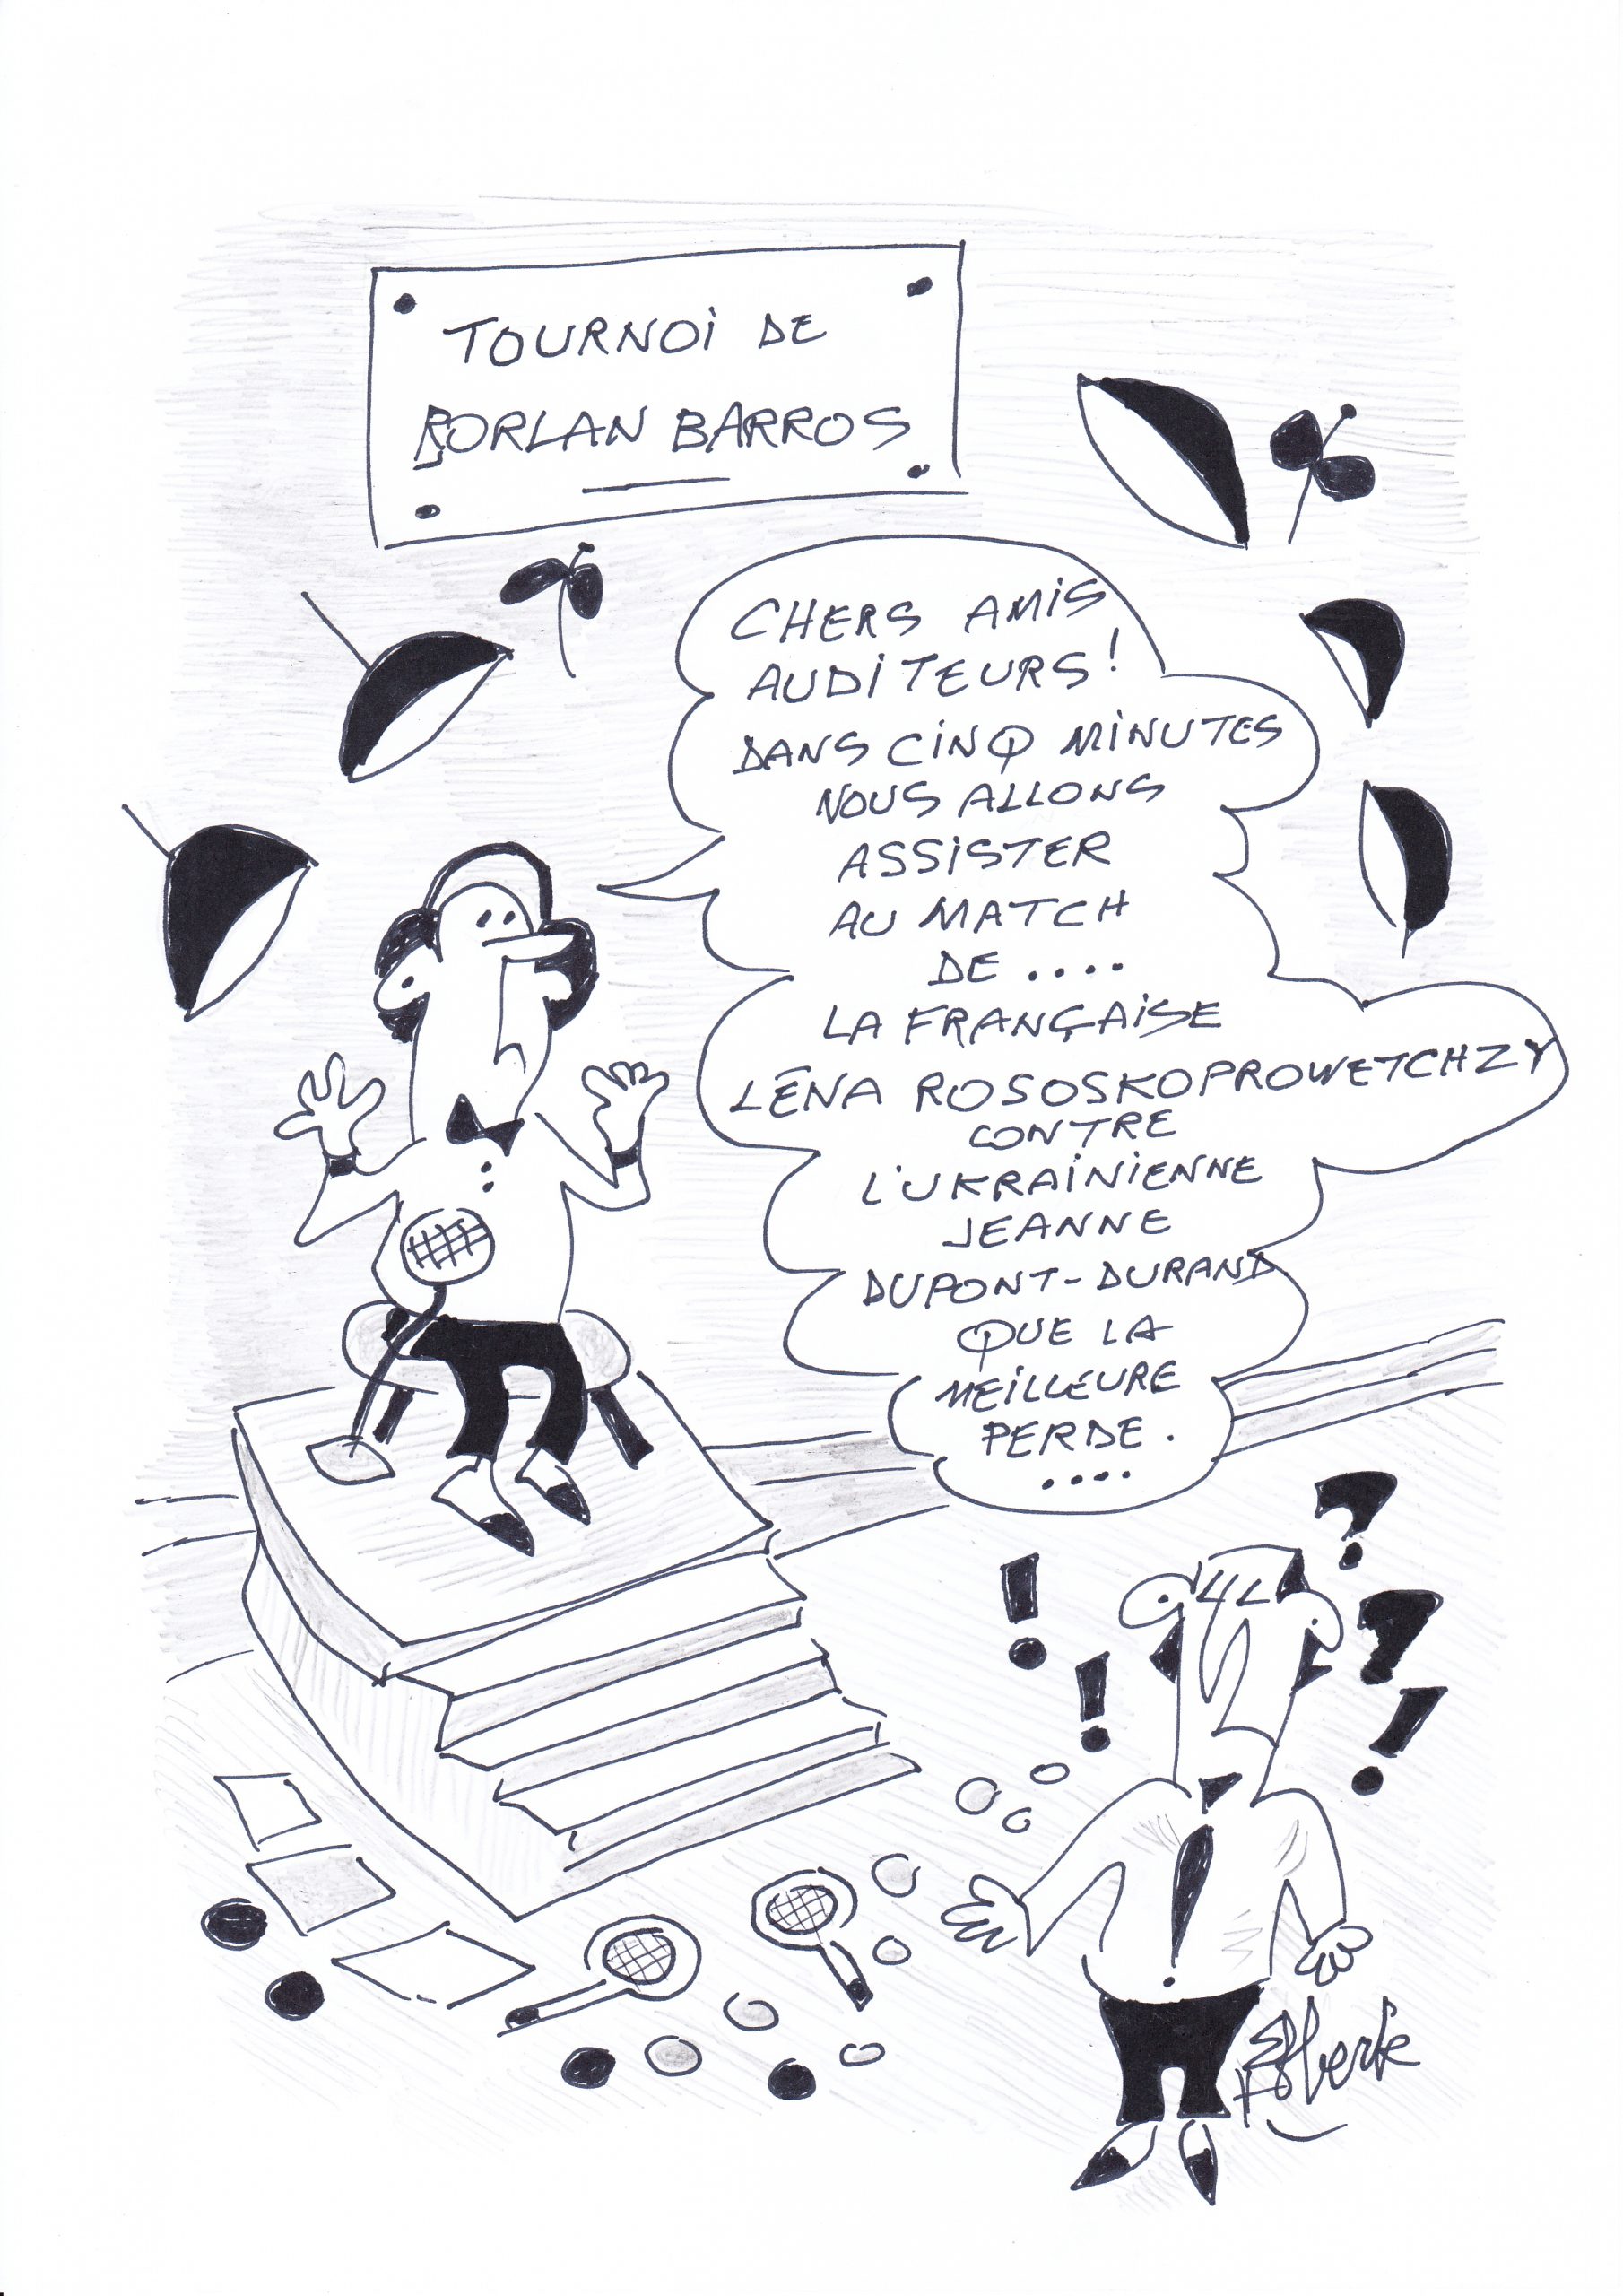 TOURNOI DE
RORLAN BARROS
CHERS AMIS
AUDITEURS!
DANS CINQ MINUTES
NOUS ALLONS
ASSISTER
AU MATCH
DE ....
LA FRANÇAISE
LÉNA ROSOSKOPROWETCHZY
CONTRE
L'UKRAINIENNE
JEANNE
DUPONT-DURAND
QUE LA
MEILLEURE
PERDE.
....
! ?
! ?
!